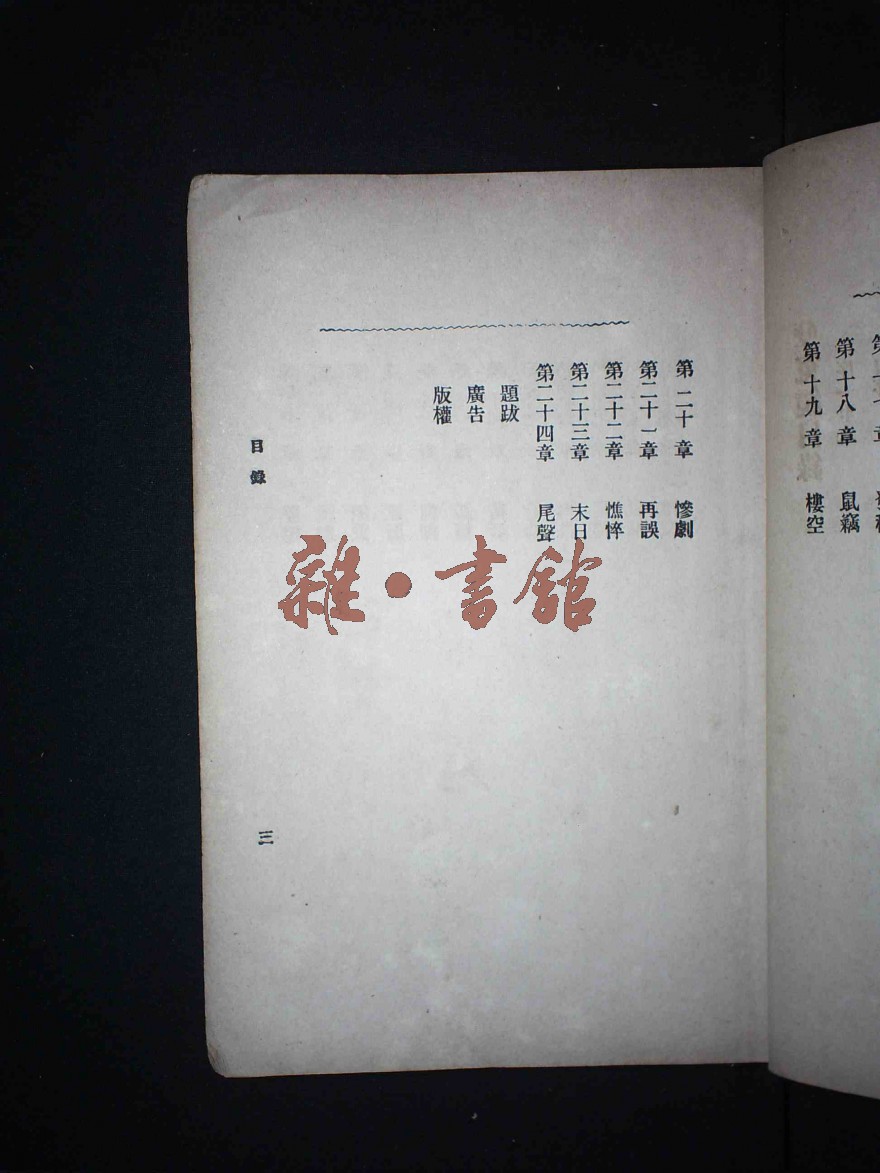 第十八章 鼠竊
第十九章 樓空
第二十章 慘劇
第二十一章 再誤
第二十二章 憔悴
第二十三章 末日
第二十四章 尾聲
題跋
廣告
版權
目錄
三
雜·書館